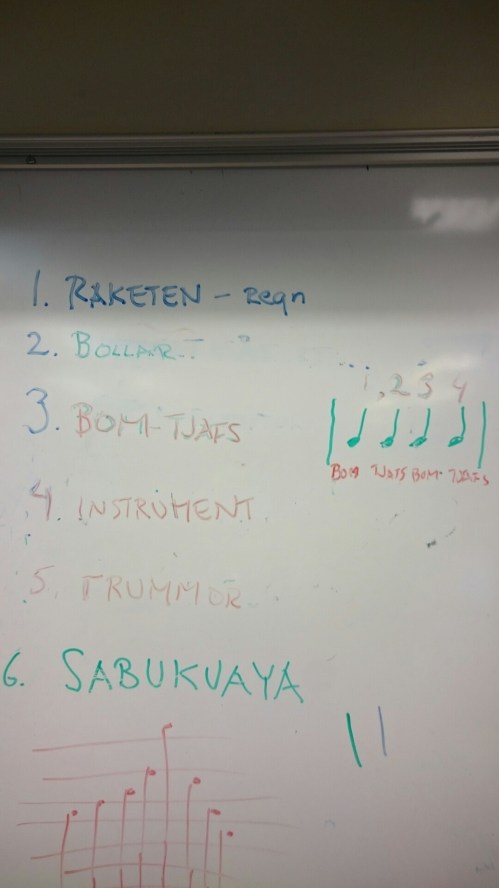 1. RAKETEN - regn
2. BOLLAR
3. BOM-TJAFS
4. INSTRUMENT
5. TRUMMOR
6. SABUKUAYA
1, 2 3 4
BOM TJAFS BOM- TJAFS